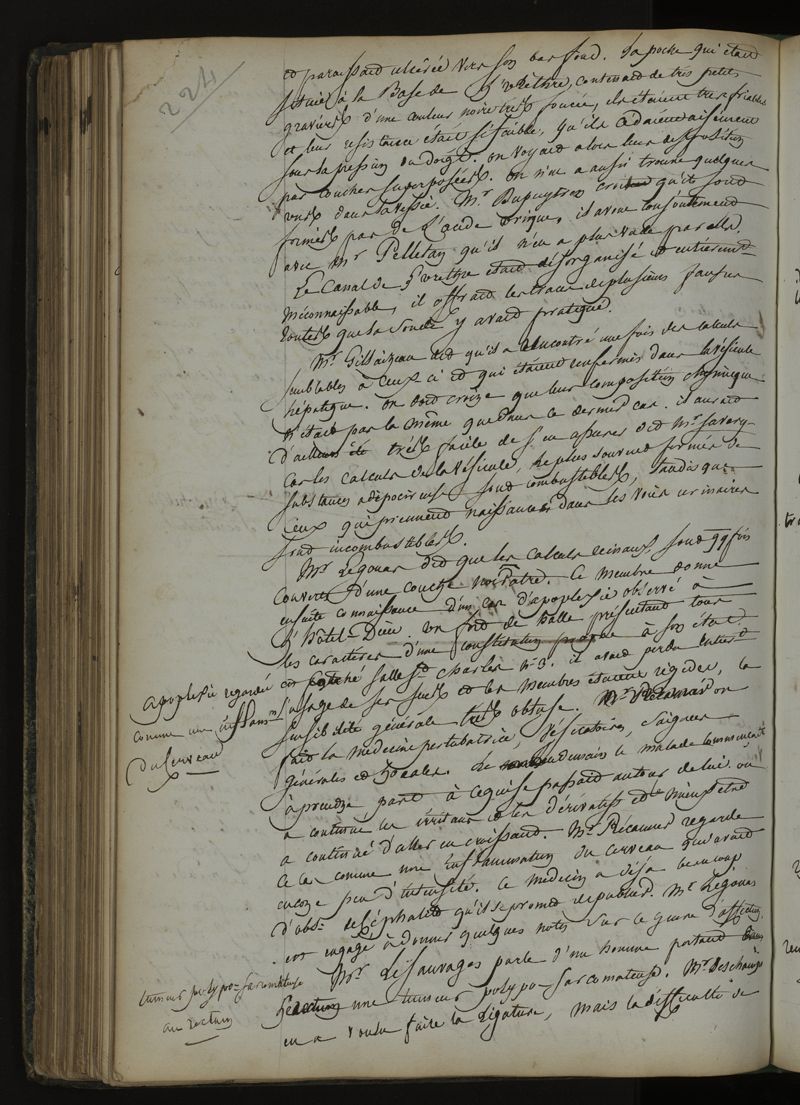 224
et paraissait ulcérée vers son bas fond. La poche qui était
située à la Base de l'urèthre, contenait de très petits
graviers d'une couleur noire très foncée, ils étaient très friables
et leur résistance était si faible, qu'ils cédaient aisément
sous la pression du doigt. on voyait alors leur disposition
par couches superposées. on n'en a aussi trouvé quelques
uns dans la vessie. Mr Dupuytren croit qu'ils sont
formés par de l'acide urique, il avoue conjointement
avec Mr Pelletan qu'il n'en a plus vu de pareils.
Le Canal de l'urèthre était désorganisé et entièremt
méconnaissable, il offrait les traces de plusieurs fausses
routes que la Sonde y avait pratiqué.
Mr Gillaizeau dit qu'il a rencontré une fois des calculs
semblables à ceux ci et qui étaient renfermés dans la vésicule
hépatique. on doit croire que leur composition chymique
n'était pas la même que dans le dernier cas. il aurait
d'ailleurs été très facile de s'en assurer dit Mr Savary
car les calculs de la vésicule, le plus souvent formés de
substances adipocireuses sont combustibles, tandis que
ceux qui prennent naissance dans les voies urinaires
sont incombustibles.
Mr Legouas dit que les calculs rénaux sont qqfois
couverts d'une couche noirâtre. Ce membre donne
ensuite connaissance d'un cas d'apoplexie observé à
l'hôtel-Dieu. un fort de halle présentant tous
les caractères d'une constitution propre à son état
est couché salle St Charles n° 3. il avait perdu entiert
l'usage de ses sens et les membres étaient rigides, la
sensibilité générale très obtuse. Mr Récamier on
fait la médecine perturbatrice, vésicatoires, saignées
générales et locales. Le lendemain le malade commençait
à prendre part à ce qui se passait autour de lui. on
a continué les irritans et les dérivatifs et le mieux être
a continué d'aller en croissant. Mr Récamier regarde
ce cas comme une Inflammation du cerveau qui avait
encore peu d'intensité. Ce médecin a déjà beaucoup
d'obs. de Céphalite qu'il se promet de publier. Mr Legouas
est engagé à donner quelques notes sur ce genre d'affection.
Mr Lesauvages parle d'un homme portant
une tumeur polypo-sarcomateuse. Mr Deschamps
en a voulu faire la ligature, mais la difficulté de
apoplexie regardée
comme une inflammn
du cerveau
tumeur polypo-sarcomateuse
au rectum